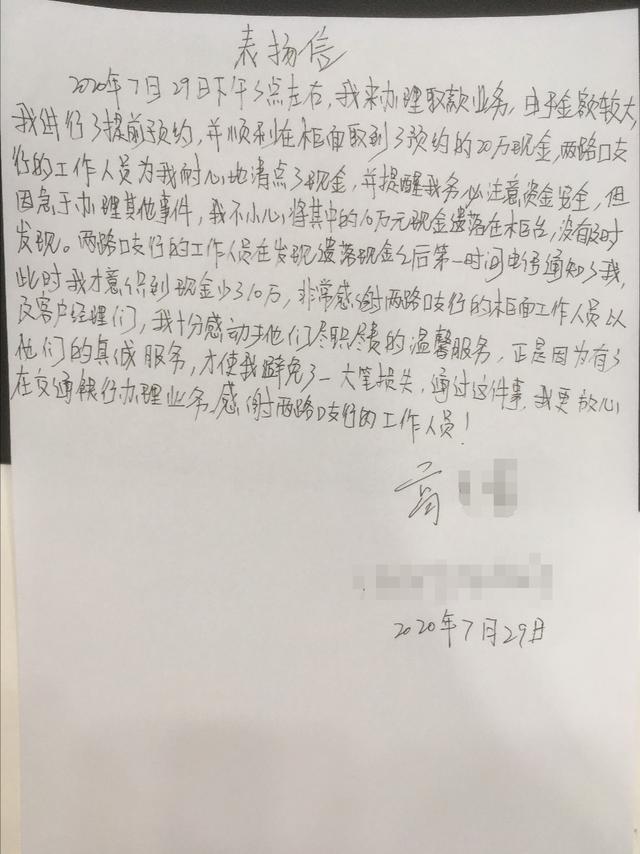 表扬信
2020年7月29日下午3点左右，我来办理取款业务，由于金额较大，
我进行了提前预约，并顺利在柜面取到了预约的20万现金，两路口支
行的工作人员为我耐心地清点了现金，并提醒我务必注意资金安全，但
因急于办理其他事件，我不小心将其中的10万元现金遗落在柜台，没有及时
发现。两路口支行的工作人员在发现遗落现金之后第一时间电话通知了我，
此时我才意识到现金少了10万，非常感谢两路口支行的柜面工作人员以
及客户经理们，我十分感动于他们尽职尽责的温馨服务，正是因为有了
他们的真诚服务，才使我避免了一大笔损失，通过这件事，我更放心
在交通银行办理业务。感谢两路口支行的工作人员！
高
2020年7月29日